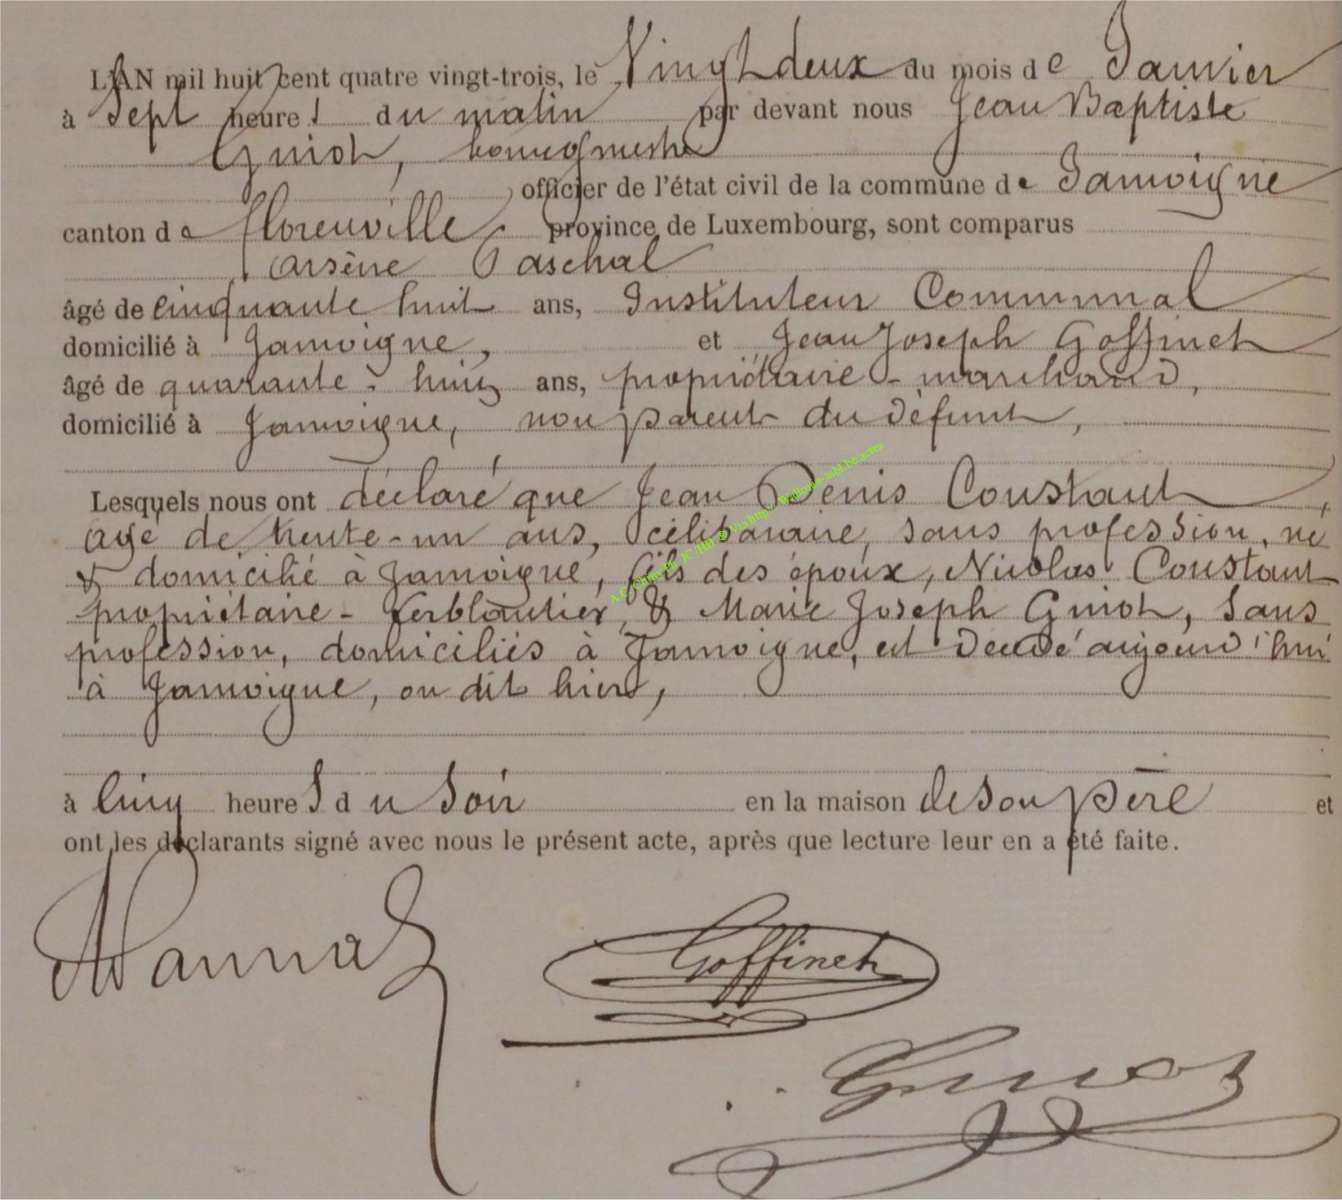 L'AN mil huit cent quatre vingt-trois, le Vingt deux du mois de Janvier
à Sept heures du matin par devant nous Jean Baptiste
Guiot, bourgmestre
officier de l'état civil de la commune de Jamoigne
canton de florenville, province de Luxembourg, sont comparus
arsène Paschal
âgé de cinquante huit ans, Instituteur Communal
domicilié à Jamoigne, et Jean Joseph Goffinet
âgé de quarante-huit ans, propriétaire - marchand,
domicilié à Jamoigne, non parents du défunt,
Lesquels nous ont déclaré que Jean Denis Constant,
agé de trente-un ans, célibataire, sans profession, né
& domicilié à Jamoigne, fils des époux, Nicolas Constant
propriétaire - ferblantier, & Marie Joseph Guiot, sans
profession, domiciliés à Jamoigne, est décédé aujourd'hui
à Jamoigne, ou dit hier,
à cinq heures du soir en la maison de son père et
ont les déclarants signé avec nous le présent acte, après que lecture leur en a été faite.
Goffinet
Guiot